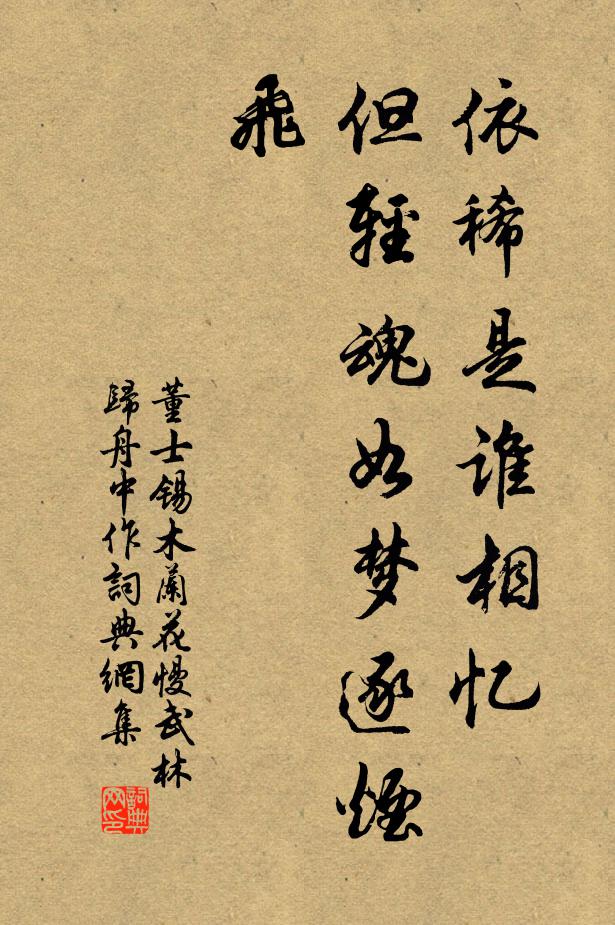 依稀是谁相忆
但轻魂如梦逐烟
飛
董士锡木蘭花慢武林
歸舟中作詞典網集
詞典网印